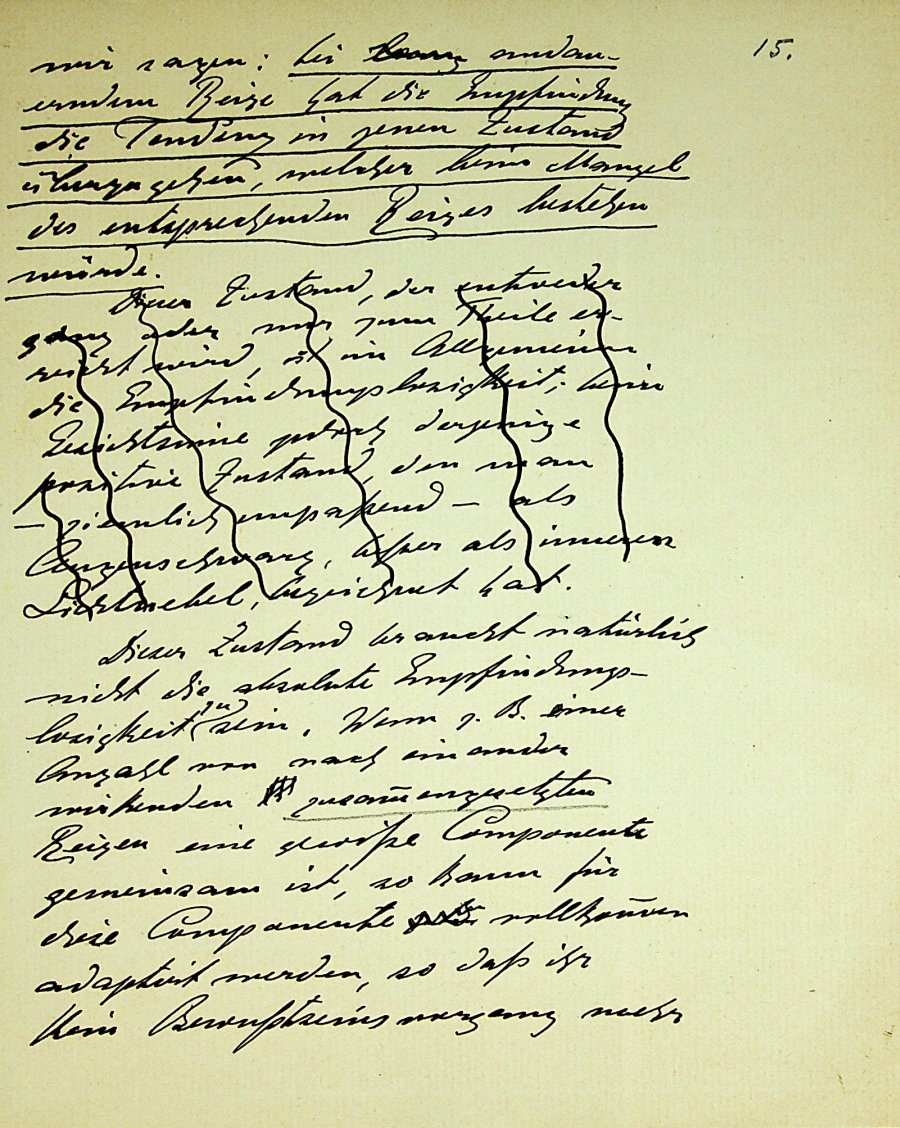 15.
wir sagen: bei lang andau-
erndem Reize hat die Empfindung
die Tendenz in jenen Zustand
überzugehen, welcher beim Mangel
des entsprechenden Reizes bestehen
würde.
Dieser Zustand, der entweder
ganz oder nur zum Theile er-
reicht wird, ist im Allgemeinen
die Empfindungslosigkeit; beim
Gesichtssinne jedoch derjenige
positive Zustand, den man
— ziemlich unpaßend — als
Augenschwarz, beßer als inneren
Lichtnebel, bezeichnet hat.
Dieser Zustand braucht natürlich
nicht die absolute Empfindungs-
losigkeit zu sein. Wenn z. B. einer
Anzahl von nach einander
wirkenden zusam̄engesetzten
Reizen eine gewiße Componente
gemeinsam ist, so kann für
diese Componente vollkom̄en
adaptirt werden, so daß ihr
kein Bewußtseinsvorgang mehr